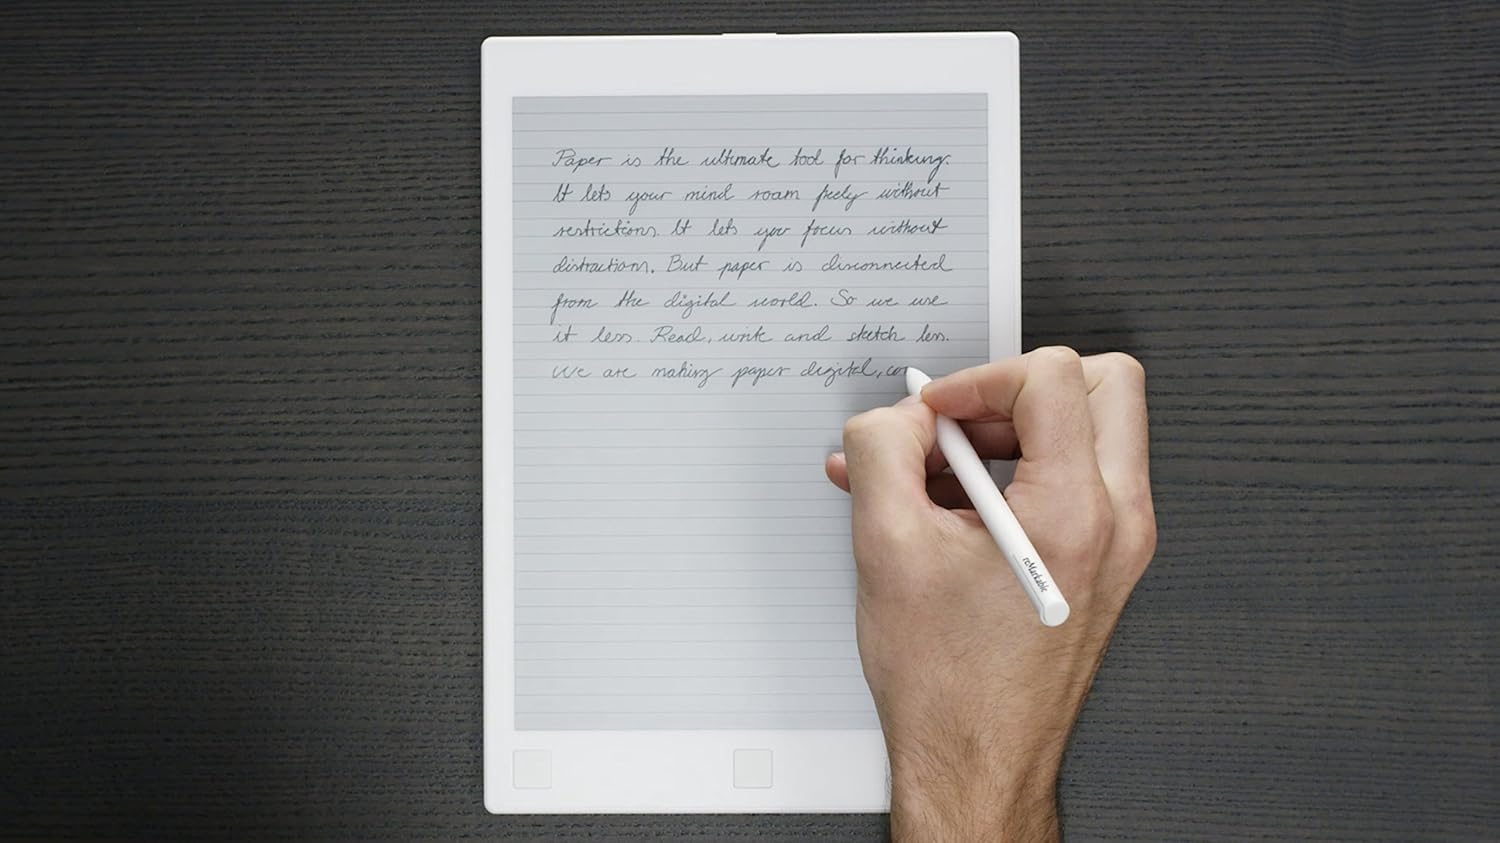 Paper is the ultimate tool for thinking.
It lets your mind roam freely without
restrictions. It lets you focus without
distractions. But paper is disconnected
from the digital world. So we use
it less. Read, write and sketch less.
We are making paper digital, co
reMarkable